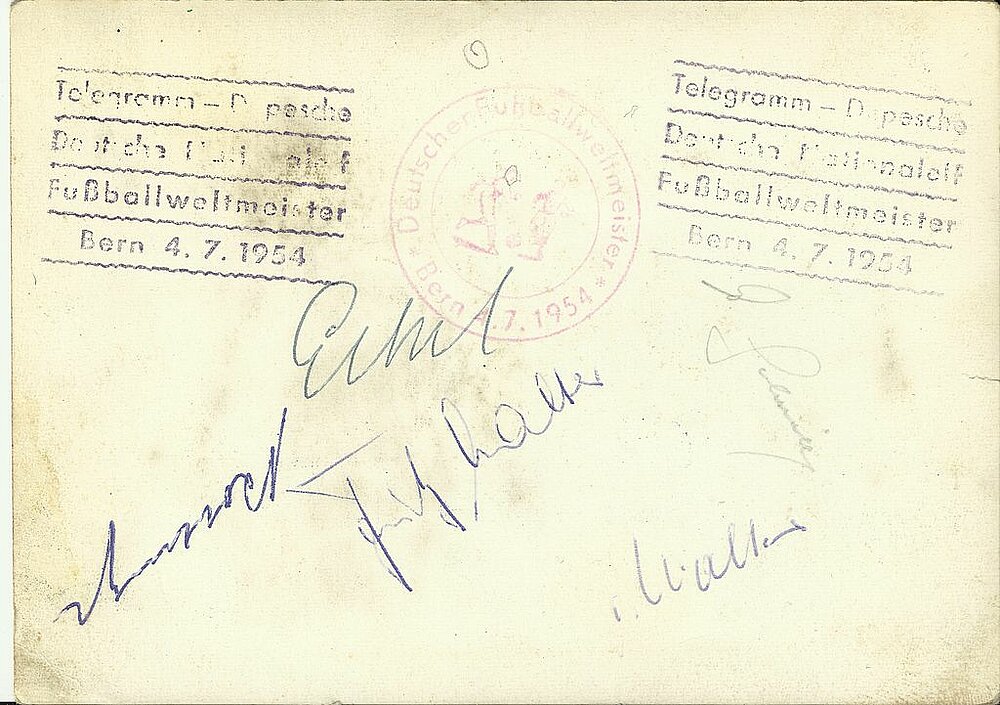 Telegramm – Depesche
Deutsche Nationalelf
Fußballweltmeister
Bern 4. 7. 1954
* Deutscher Fußballweltmeister *
Bern 4.7.1954
Telegramm – Depesche
Deutsche Nationalelf
Fußballweltmeister
Bern 4. 7. 1954
Eckel
Fritz Walter
Walter